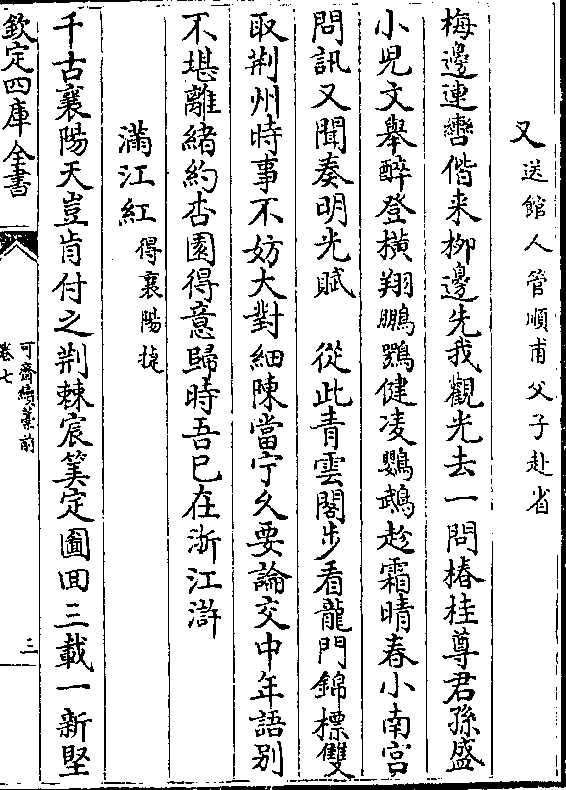 又送館人管順甫父子赴省
梅邊連轡偕来栁邊先我觀光去一問椿桂尊君孫盛
小兒文舉醉登横翔鵬鶚健凌鸚鵡趁霜晴春小南宮
問訊又聞奏明光賦　從此青雲闊步看龍門錦標雙
取荆州時事不妨大對細陳當宁久要論交中年語别
不堪離緒約杏園得意歸時吾已在浙江滸
滿江紅得襄陽捷
千古襄陽天豈肯付之荆棘宸筭定圖回三載一新堅
欽定四庫全書
可齋續藁前
卷七
三